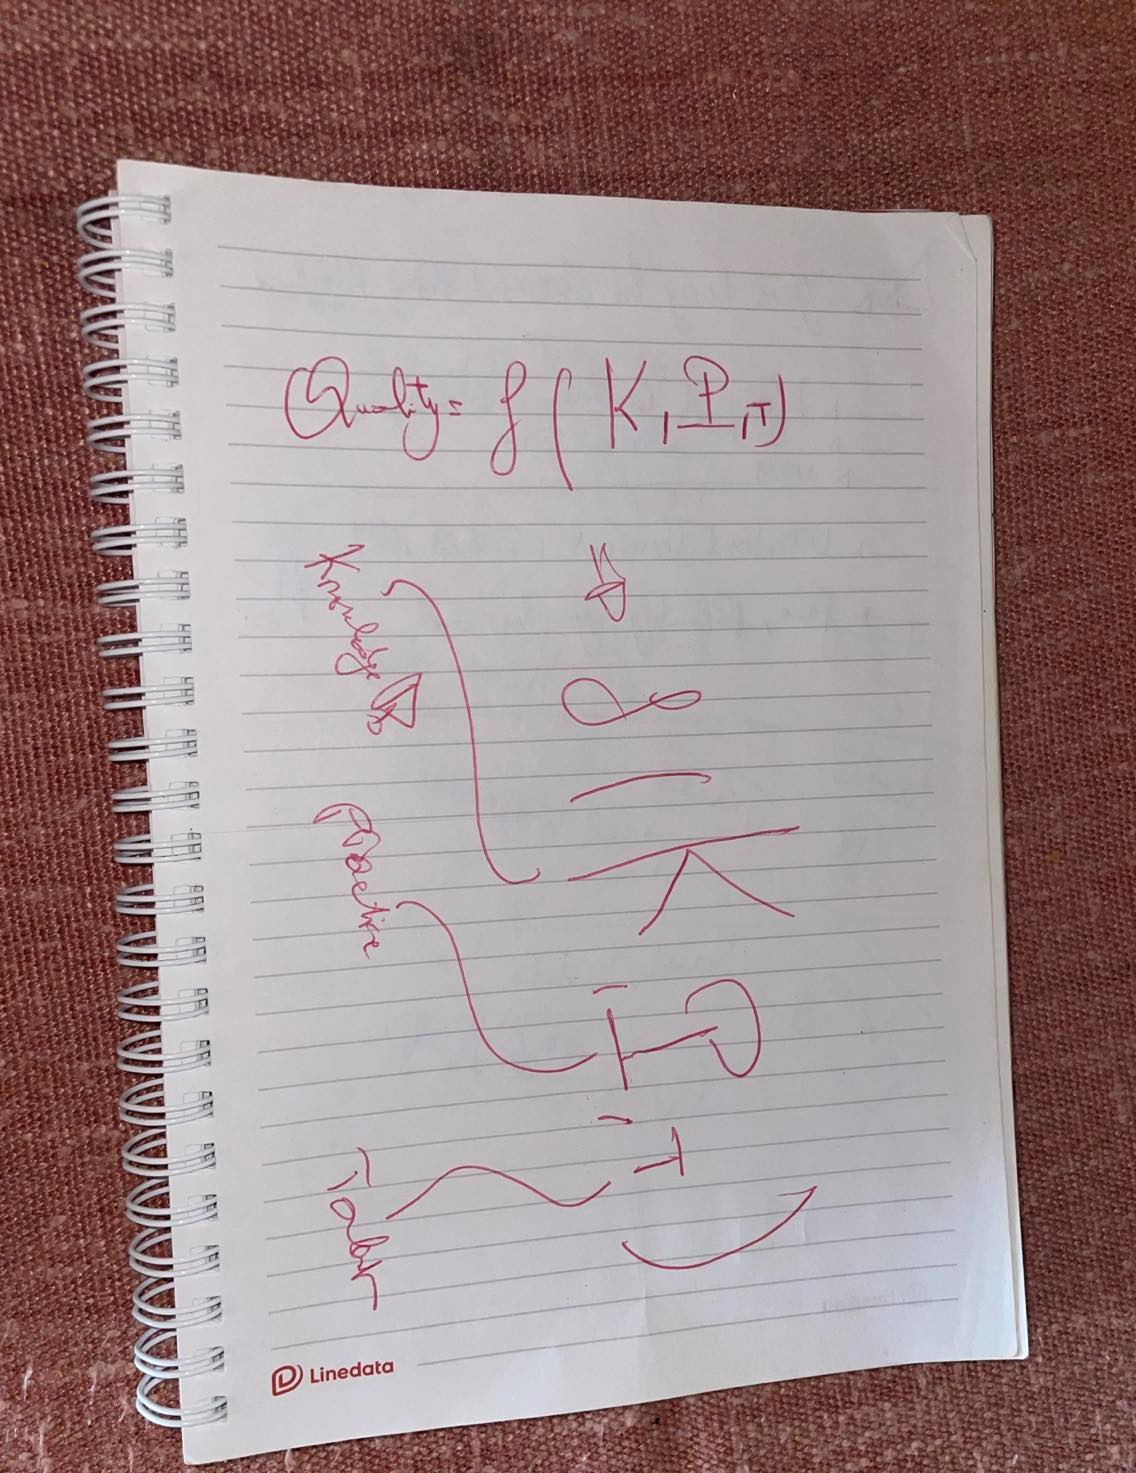 Quality = f (K, P, T)
= f ( K, P, T )
Knowledge
Practice
Linedata